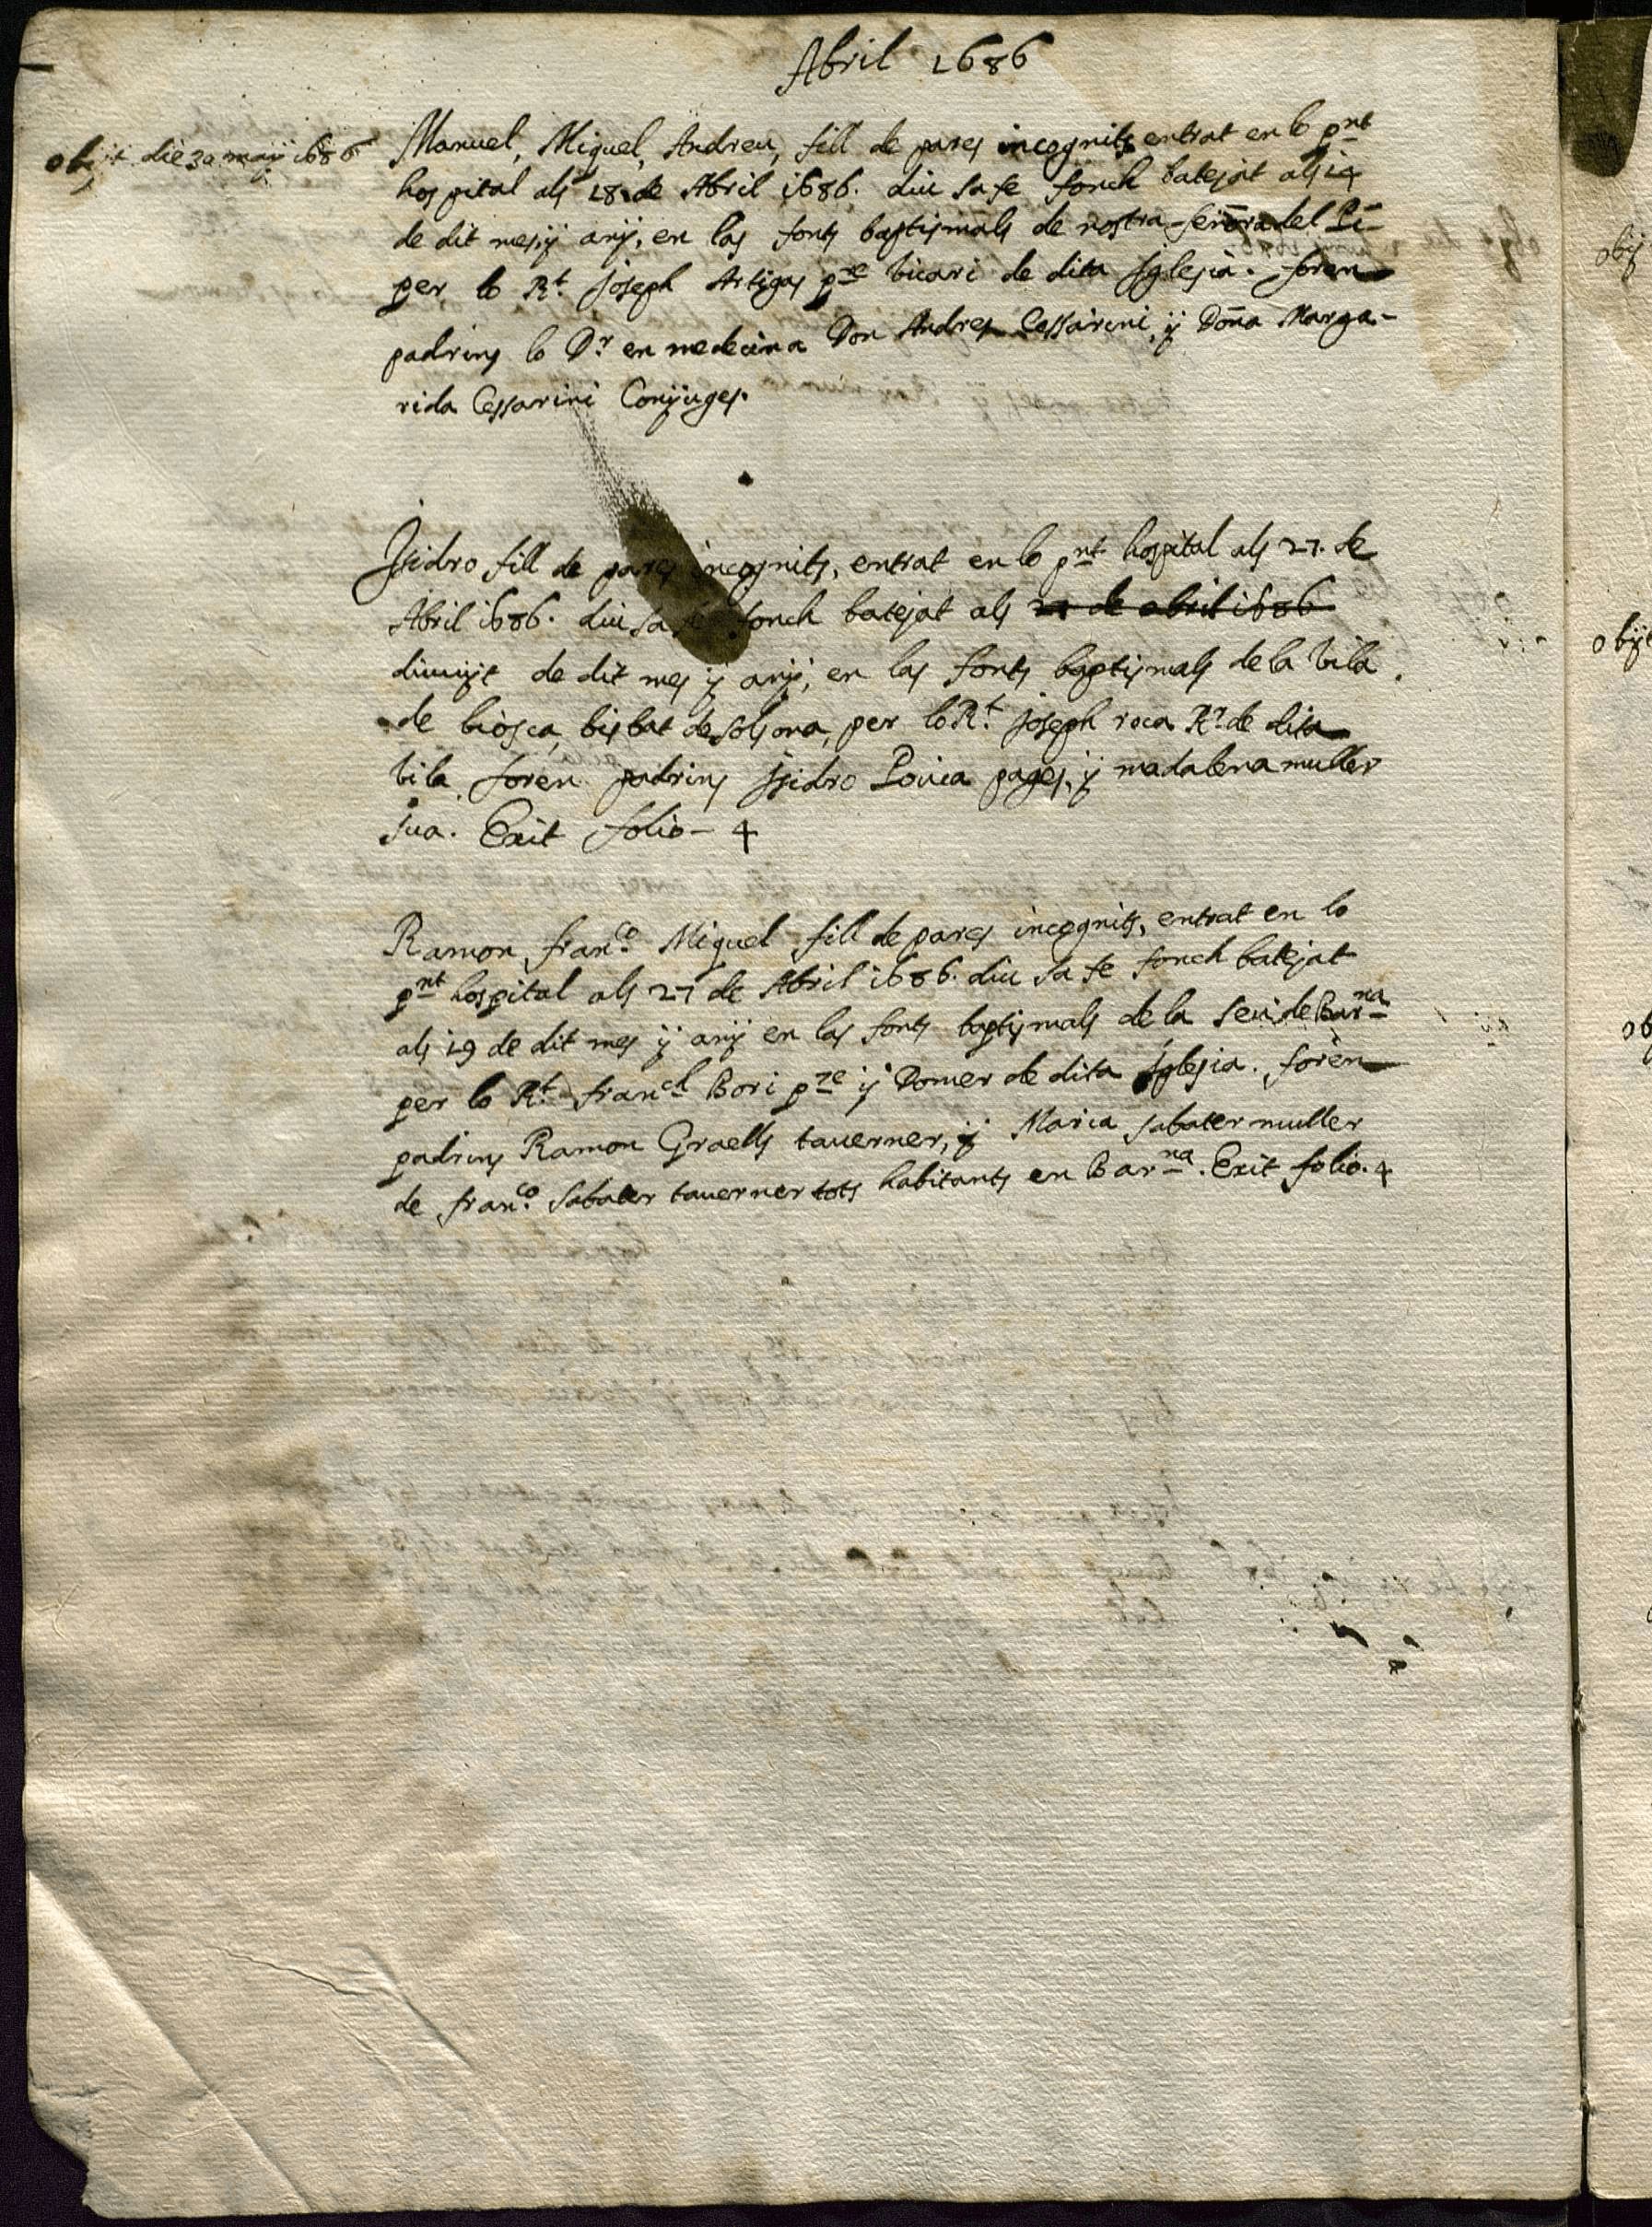 Abril 1686
obijt die 30 maij 1686
Manuel, Miguel, Andreu, fill de pares incognits entrat en lo pnt
hospital als 18 de Abril 1686. diu sa fe fonch batejat als 14
de dit mes ÿ anÿ, en las fonts baptismals de nostra señora del Pi
per lo Rt. Joseph Artigas pre vicari de dita Iglesia. foren
padrins lo Dr en medecina Don Andres Cessarini, ÿ Doña Marga-
rida Cessarini Conjuges.
Isidro fill de pares incognits, entrat en lo pnt hospital als 27. de
Abril 1686. diu sa fe fonch batejat als 27 de abril 1686
divuÿt de dit mes ÿ anÿ, en las fonts baptismals de la vila
de biosca, bisbat de solsona, per lo Rt. Joseph roca Rr de dita
vila foren padrins Isidro pages, ÿ madalena muller
sua. Exit folio - 4
Ramon franco. Miguel fill de pares incognits, entrat en lo
pnt hospital als 27 de Abril 1686. diu sa fe fonch batejat
als 19 de dit mes ÿ anÿ en las fonts baptismals de la seu de Barna
per lo Rt. franch Bori pre ÿ Domer de dita Iglesia. foren
padrins Ramon Graells taverner, ÿ Maria sabater muller
de franco. Sabater taverner tots habitants en Barna. Exit folio. 4